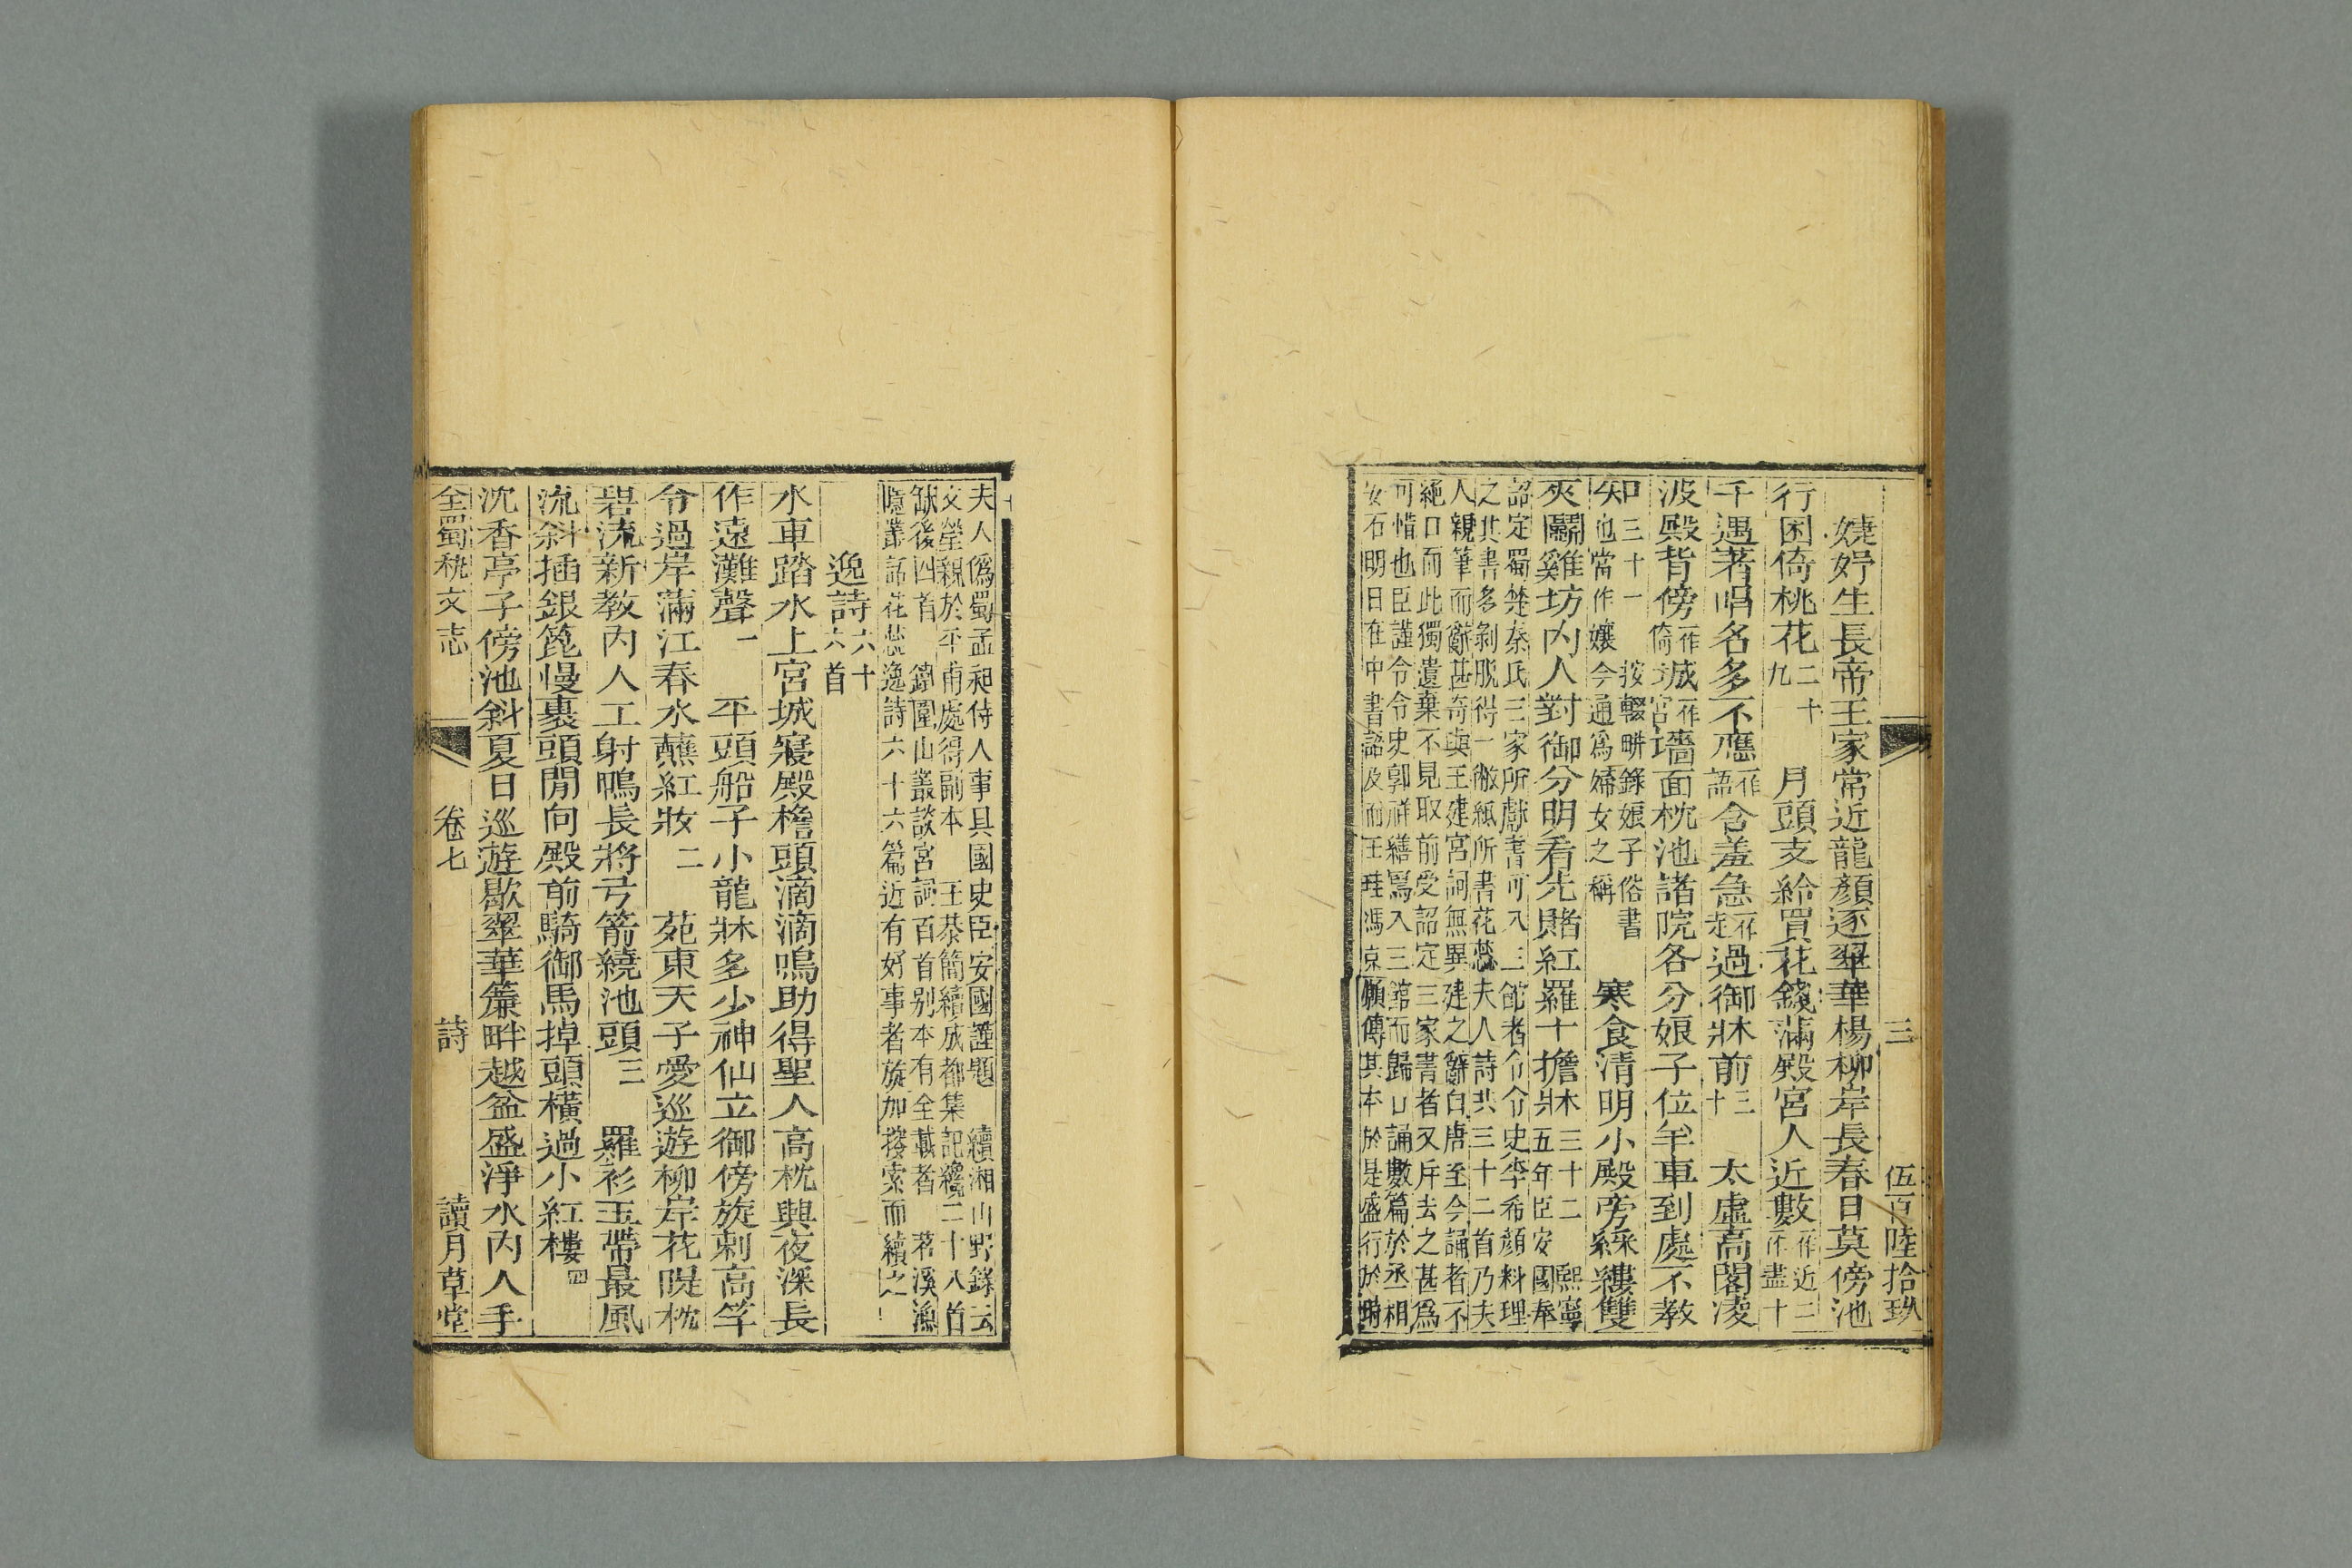 三　伍百陸拾玖
婕妤生長帝王家常近龍顏逐翠華楊柳岸長春日莫傍池
行困倚桃花二十九　月頭支給買花錢滿殿宮人近數一作近二作盡十
千遇著唱名多不應一作語含羞急一作走過御牀前三十　太虛高閣凌
波殿背傍一作倚城一作宮墻面枕池諸院各分娘子位羊車到處不教
知三十一　按輟畊錄娘子俗書也當作孃今通爲婦女之稱　寒食清明小殿旁綵縷雙
夾鬬雞坊內人對御分明看先賭紅羅十擔牀三十二　熙寧五年臣安國奉
詔定蜀楚秦氏三家所獻書可入三館者令令史李希顏料理
之其書多剝脫得一敝紙所書花蕊夫人詩共三十二首乃夫
人親筆而辭甚奇與王建宮詞無異建之辭自唐至今誦者不
絕口而此獨遺棄不見取前受詔定三家書者又斥去之甚爲
可惜也臣謹令令史郭祥繕寫入三館而歸口誦數篇於丞相
安石明日在中書語及而王珪馮京願傳其本於是盛行於時
夫人僞蜀孟昶侍人事具國史臣安國謹題　續湘山野錄云
文瑩親於平甫處得副本　王恭簡續成都集記纔二十八首
缺後四首　鐵圍山叢談宮詞百首別本有全載者　苕溪漁
隱叢話花蕊逸詩六十六篇近有好事者旋加搜索而續之
逸詩六十六首
水車踏水上宮城寢殿檐頭滴滴鳴助得聖人高枕興夜深長
作遠灘聲一　平頭船子小龍牀多少神仙立御傍旋刺高竿
令過岸滿江春水蘸紅妝二　苑東天子愛巡遊柳岸花隄枕
碧流新教內人工射鴨長將弓箭繞池頭三　羅衫玉帶最風
流斜插銀篦慢裹頭閒向殿前騎御馬掉頭橫過小紅樓四
沈香亭子傍池斜夏日巡遊歇翠華簾畔越盆盛淨水內人手
全蜀秇文志　卷七　詩　讀月草堂